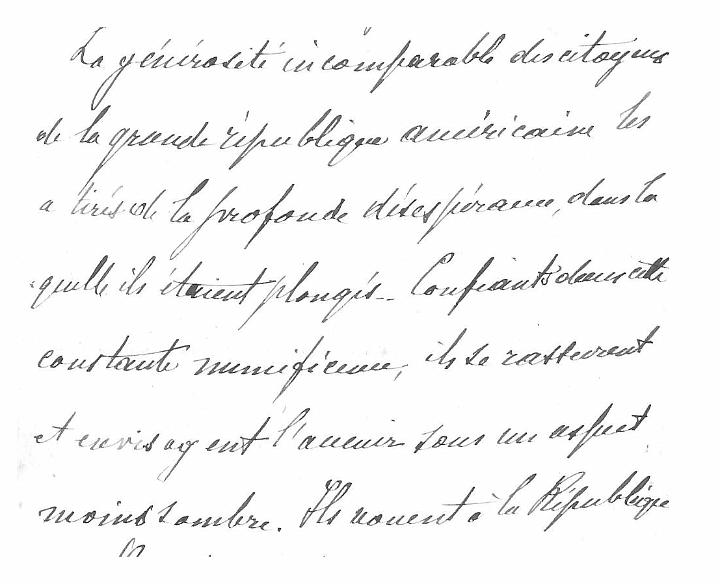 La générosité incomparable des citoyens
de la grande république américaine les
a tirés de la profonde désespérance, dans la
quelle ils étaient plongés_ Confiants dans cette
constante munificence, ils se rassurent
et envisagent l'avenir sous un aspect
moins sombre. Ils vouent à la République